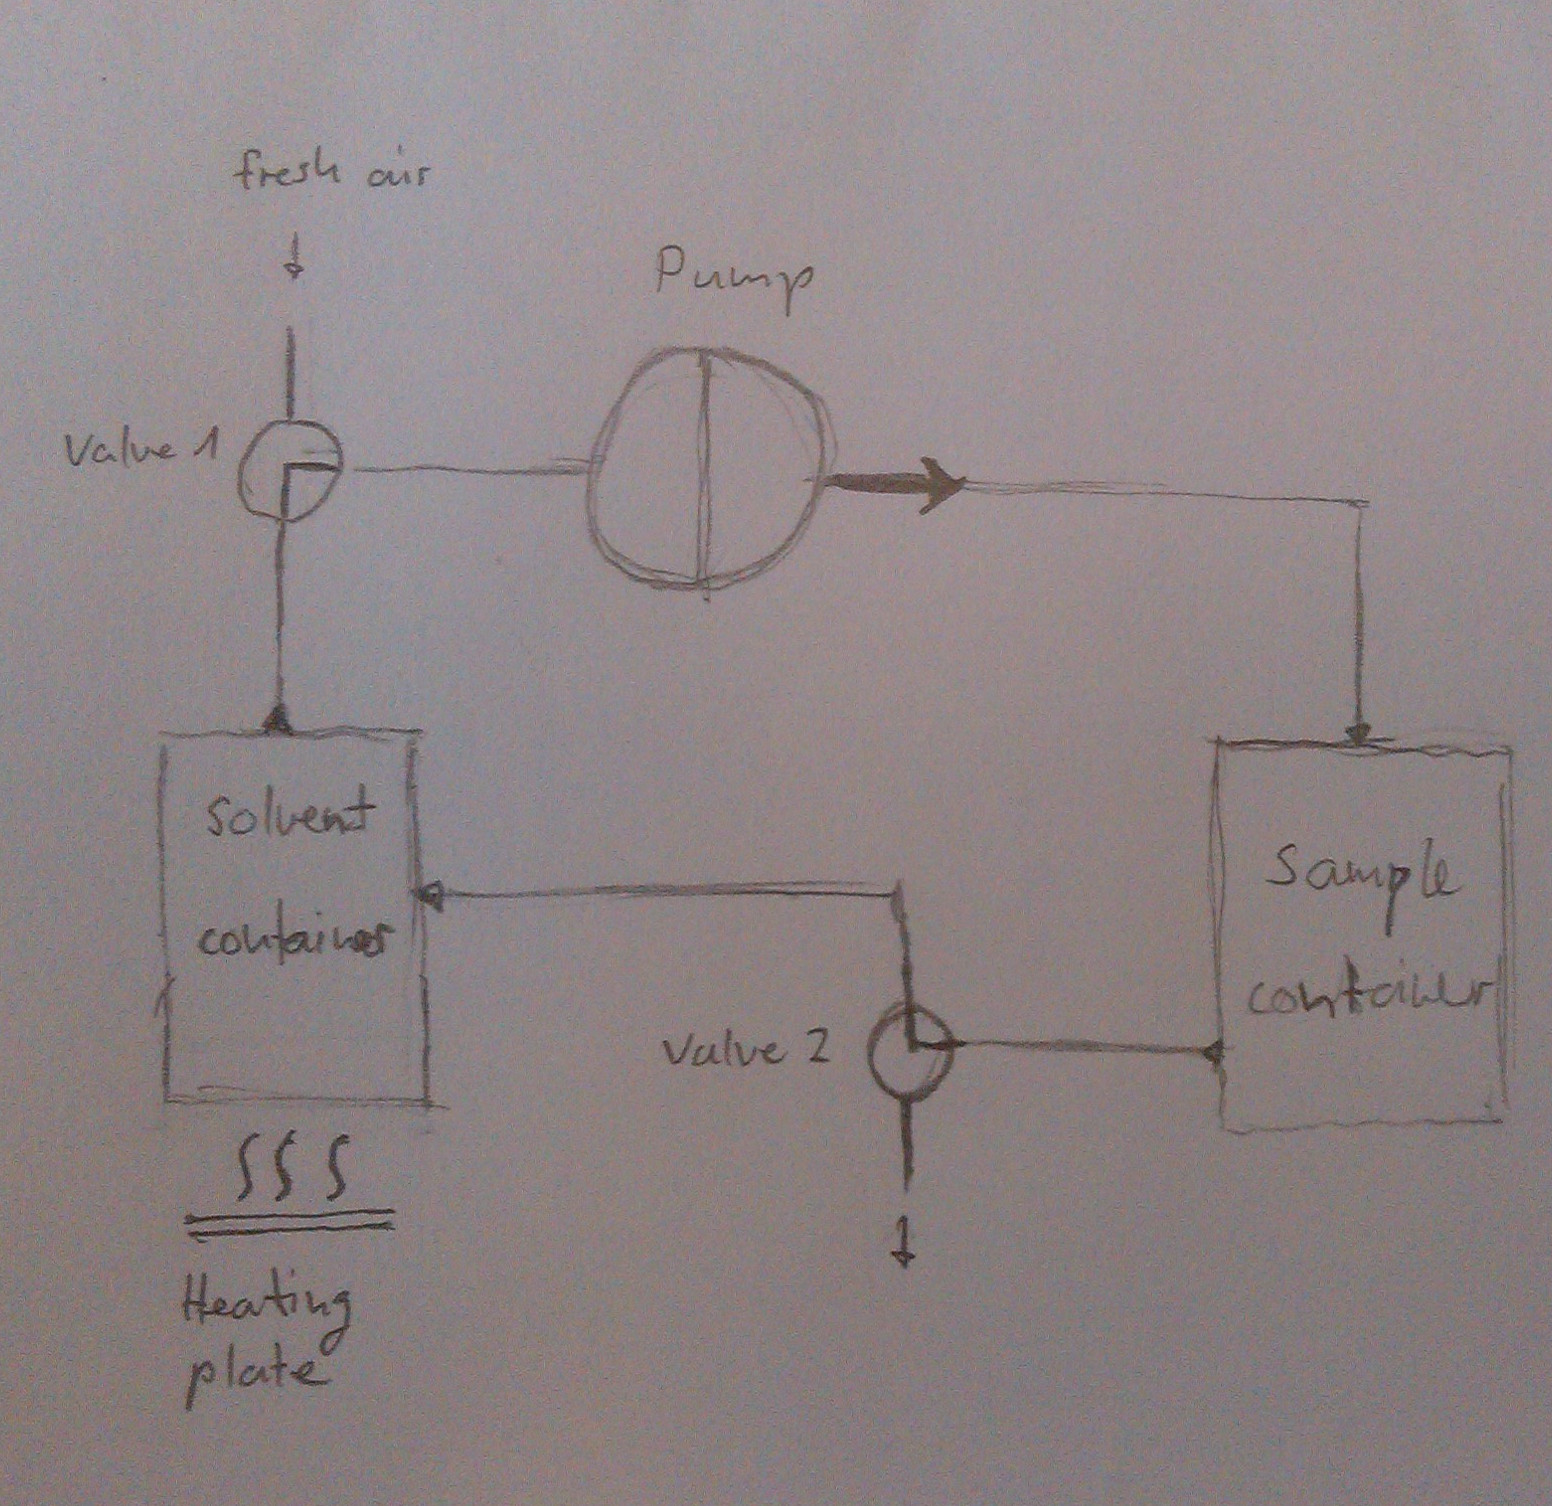 fresh air
Pump
Valve 1
solvent
container
Sample
container
Valve 2
Heating
plate